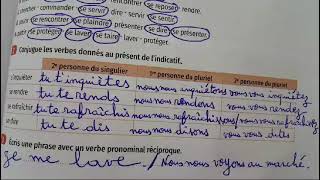 rencontrer - se reposer
marcher - commander se servir dire - sentir rendre.
se rencontrer se plaindre présenter se dire se présenter
se protéger se laver se taire laver - protéger.
Conjugue les verbes donnés au présent de l'indicatif.
2e personne du singulier 1re personne du pluriel 2e personne du pluriel
s'inquiéter tu t'inquiètes nous nous inquiétons vous vous inquiétez
se rendre tu te rends nous nous rendons vous vous rendez
se rafraîchir tu te rafraîchis nous nous rafraîchissons vous vous rafraîchissez
se dire tu te dis nous nous disons vous vous dites
Écris une phrase avec un verbe pronominal réciproque.
Je me lave. / Nous nous voyons au marché.